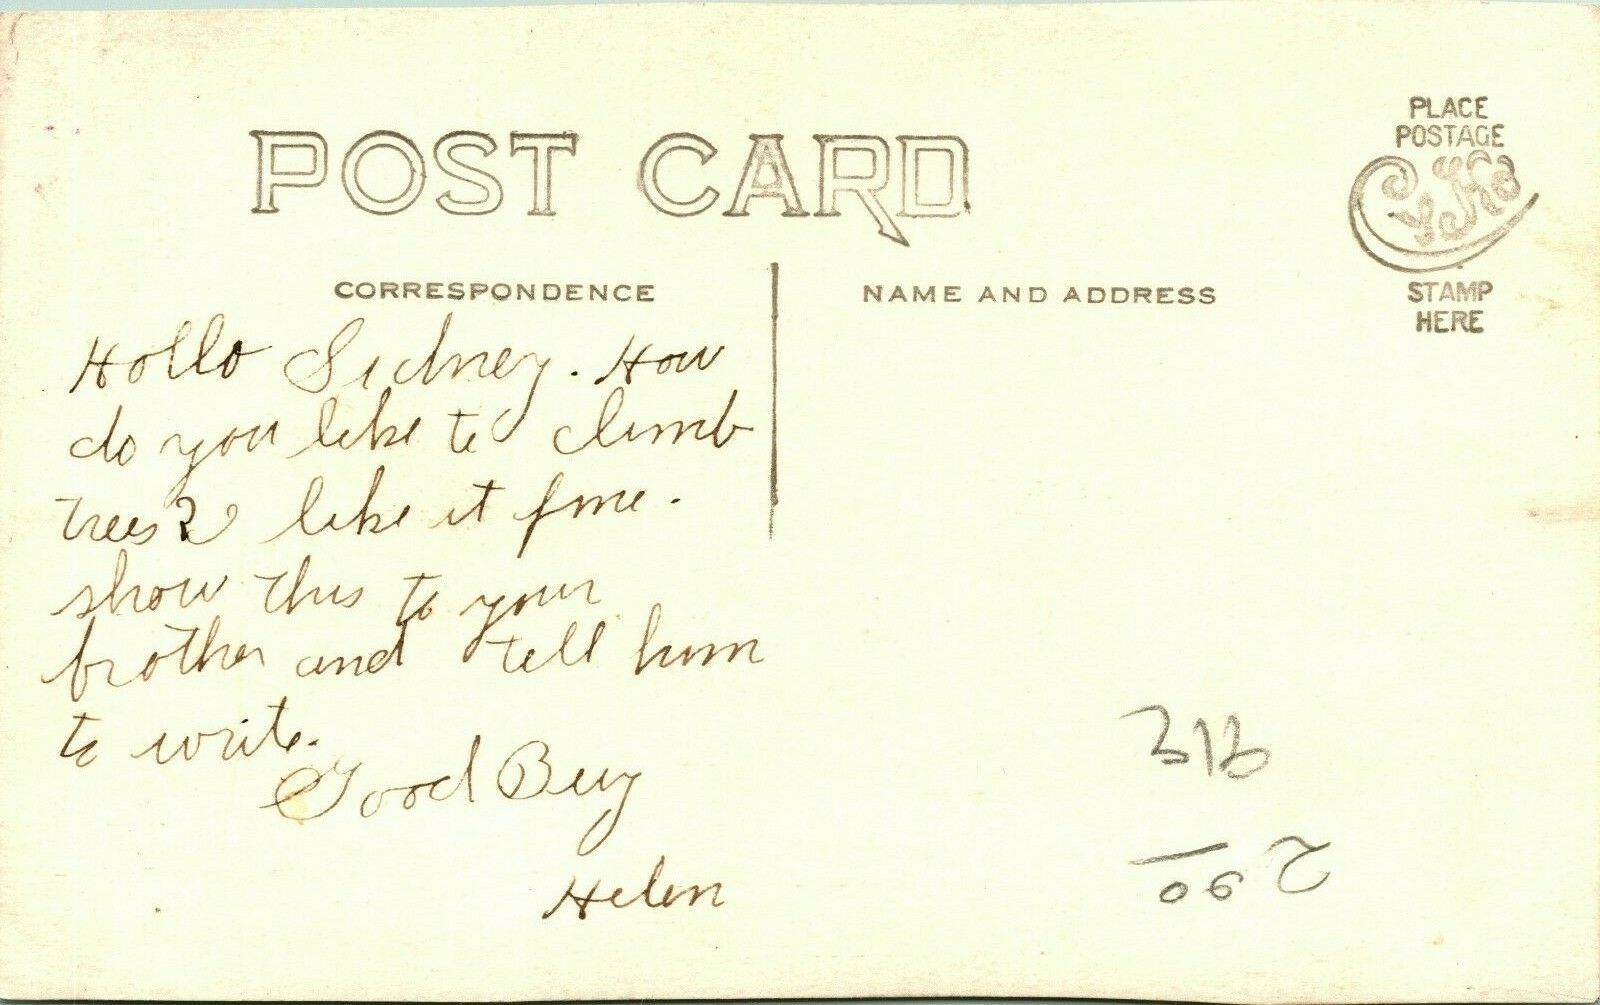 POST CARD
PLACE
POSTAGE
STAMP
HERE
CORRESPONDENCE
NAME AND ADDRESS
Hollo Sidney. How
do you like to climb
trees? like it fine.
show this to your
brother and tell him
to write.
Good Buy
Helen